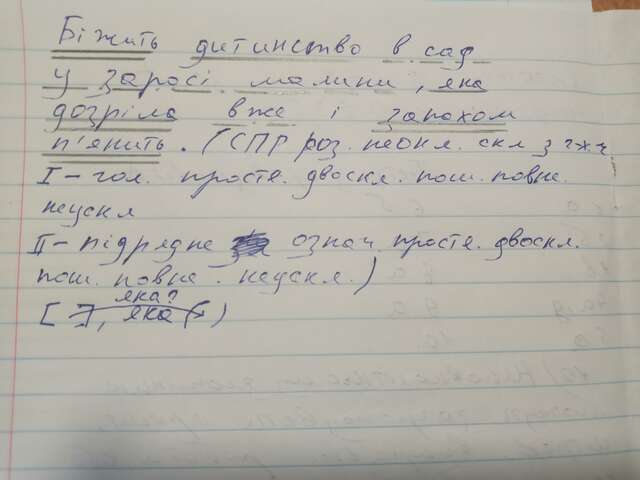 Біжить дитинство в сад
у заросі малини, яка
дозріла вже і запахом
п'янить. (СПР роз. неокл. скл з 2х.ч
I – гол. просте. двоскл. пош. повне.
неускл
II – підрядне означ. просте. двоскл.
пош. повне. неускл.)
яка?
[ ], яка ( )